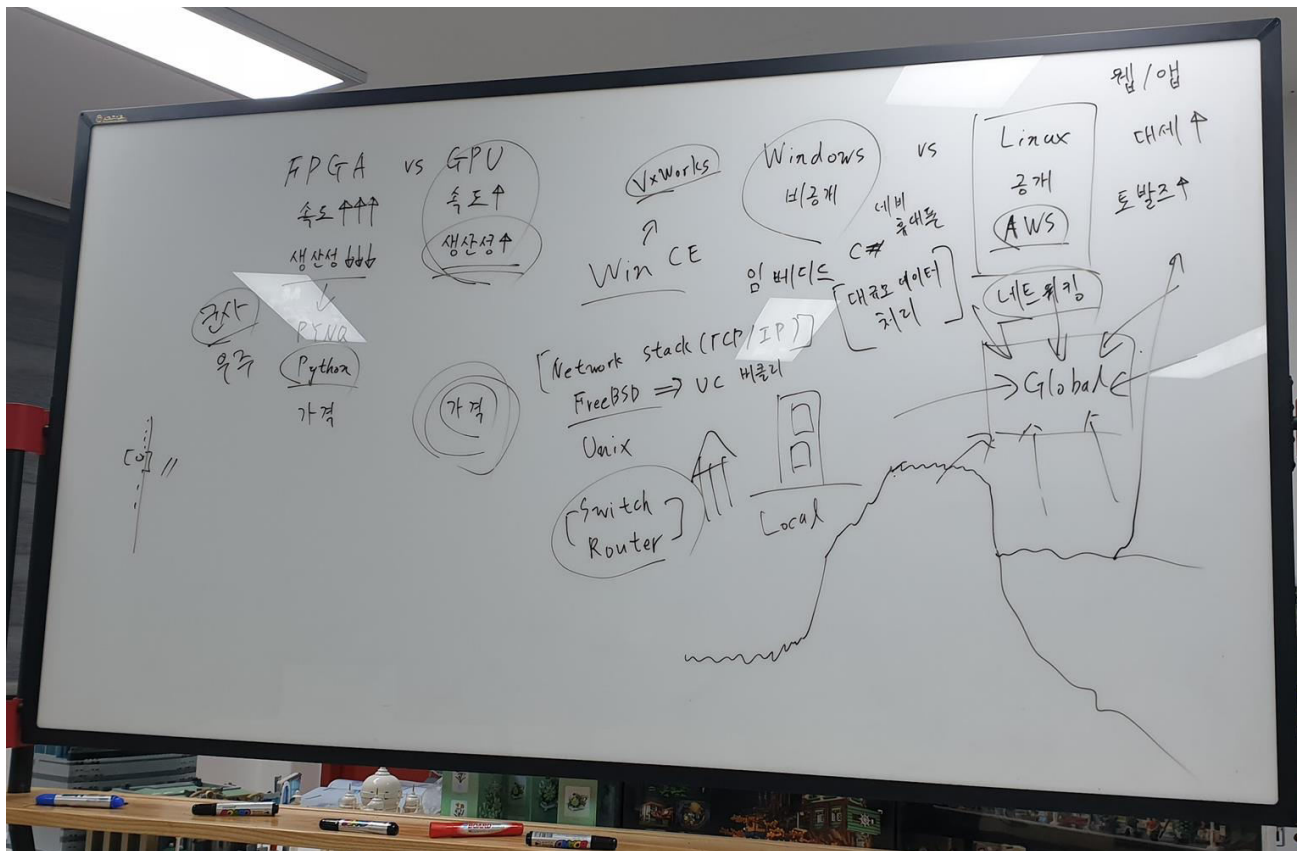 FPGA vs GPU
속도↑↑↑
속도↑
생산성↓↓↓
생산성↑
↓
PYNQ
군사
우주
Python
가격
가격
VxWorks
Win CE
Windows vs Linux
비공개
공개
AWS
웹/앱
대세↑
토발즈↑
네비
휴대폰
C#
임베디드
[대규모 데이터
처리]
네트워킹
[Network stack (TCP/IP)]
FreeBSD ⇒ UC 버클리
Unix
[Switch
Router]
Local
Global
BOARD